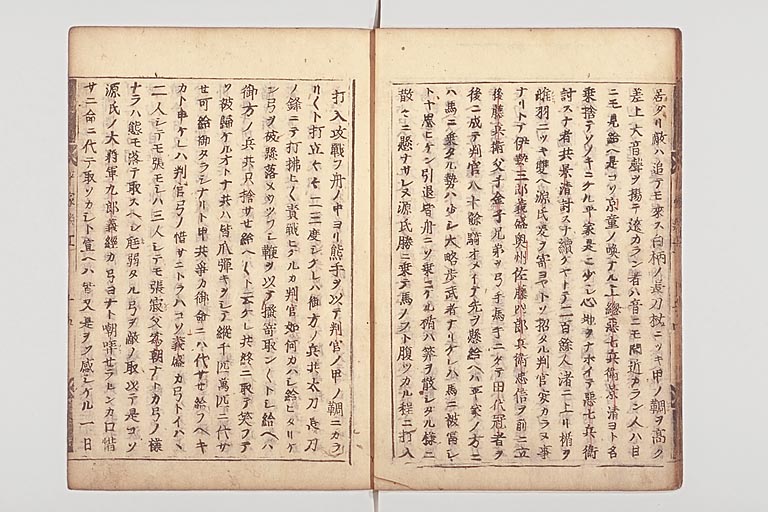 居タリ敵ハ追テモ來ス白柄ノ長刀杖ニツキ甲ノ錣ヲ高ク
差上大音聲ヲ揚テ遠カラン者ハ音ニモ聞近カラン人ハ目
ニモ見給ヘ是コソ京童ノ喚ナル上総悪七兵衛景清ヨト名
乗捨テソノキニケル平家是ニ少シ心地ヲナホイテ悪七兵衛
討スナ者共景清討スナ續クヤトテ二百余人渚ニ上リ楯ヲ
雌羽ニツキ雙ヘ源氏爰ヲ寄ヨヤトソ招タル判官安カラヌ事
ナリトテ伊勢三郎義盛奥州佐藤四郎兵衛忠信ヲ前ニ立
後藤兵衛父子金子兄弟ヲ弓手馬手ニタテ田代冠者ヲ
後ニ成テ判官八十餘騎オメイテ先ヲ懸給ヘハ平家ノ方ニ
ハ馬ニ乗タル勢ハ少シ大略歩武者ナリケレハ馬ニ被當シ
トヤ思ヒケン引退皆舟ニソ乗ニケル楯ハ筭ヲ散シタル様ニ
散々ニ懸ナサレヌ源氏勝ニ乗テ馬ノフト腹ツカル程ニ打入
打入攻戦フ舟ノ中ヨリ熊手ヲ以テ判官ノ甲ノ錣ニカラ
リ〱ト打立ヤセ二三度シケレハ御方ノ兵共太刀長刀
ノ鋒ニテ打拂ヒ〱責戦ヒケルカ判官如何カハシ給ヒタリケ
ン弓ヲ被懸落ヌウツフシ鞭ヲ以テ掻寄取ン〱トシ給ヘハ
御方ノ兵共只捨サセ給ヘ〱ト云ケレ共終ニ取テ笑フテ
ソ被歸ケルオトナ共ハ皆爪弾キヲシテ縦千疋萬疋ニ代サ
セ可給御タラシナリト申共爭カ御命ニハ代サセ給フヘキ
カト申ケレハ判官弓ノ惜サニトラハコソ義盛カ弓トイハヽ
二人シテモ張モシハ三人シテモ張叔父爲朝ナトカ弓ノ様
ナラハ態モ落テ取スヘシ尫弱タル弓ヲ敵ノ取以テ是コソ
源氏ノ大将軍九郎義經カ弓ヨナト嘲哢セラレンカ口惜
サニ命ニ代テ取ツカシト宣ヘハ皆又是ヲソ感シケル 一日